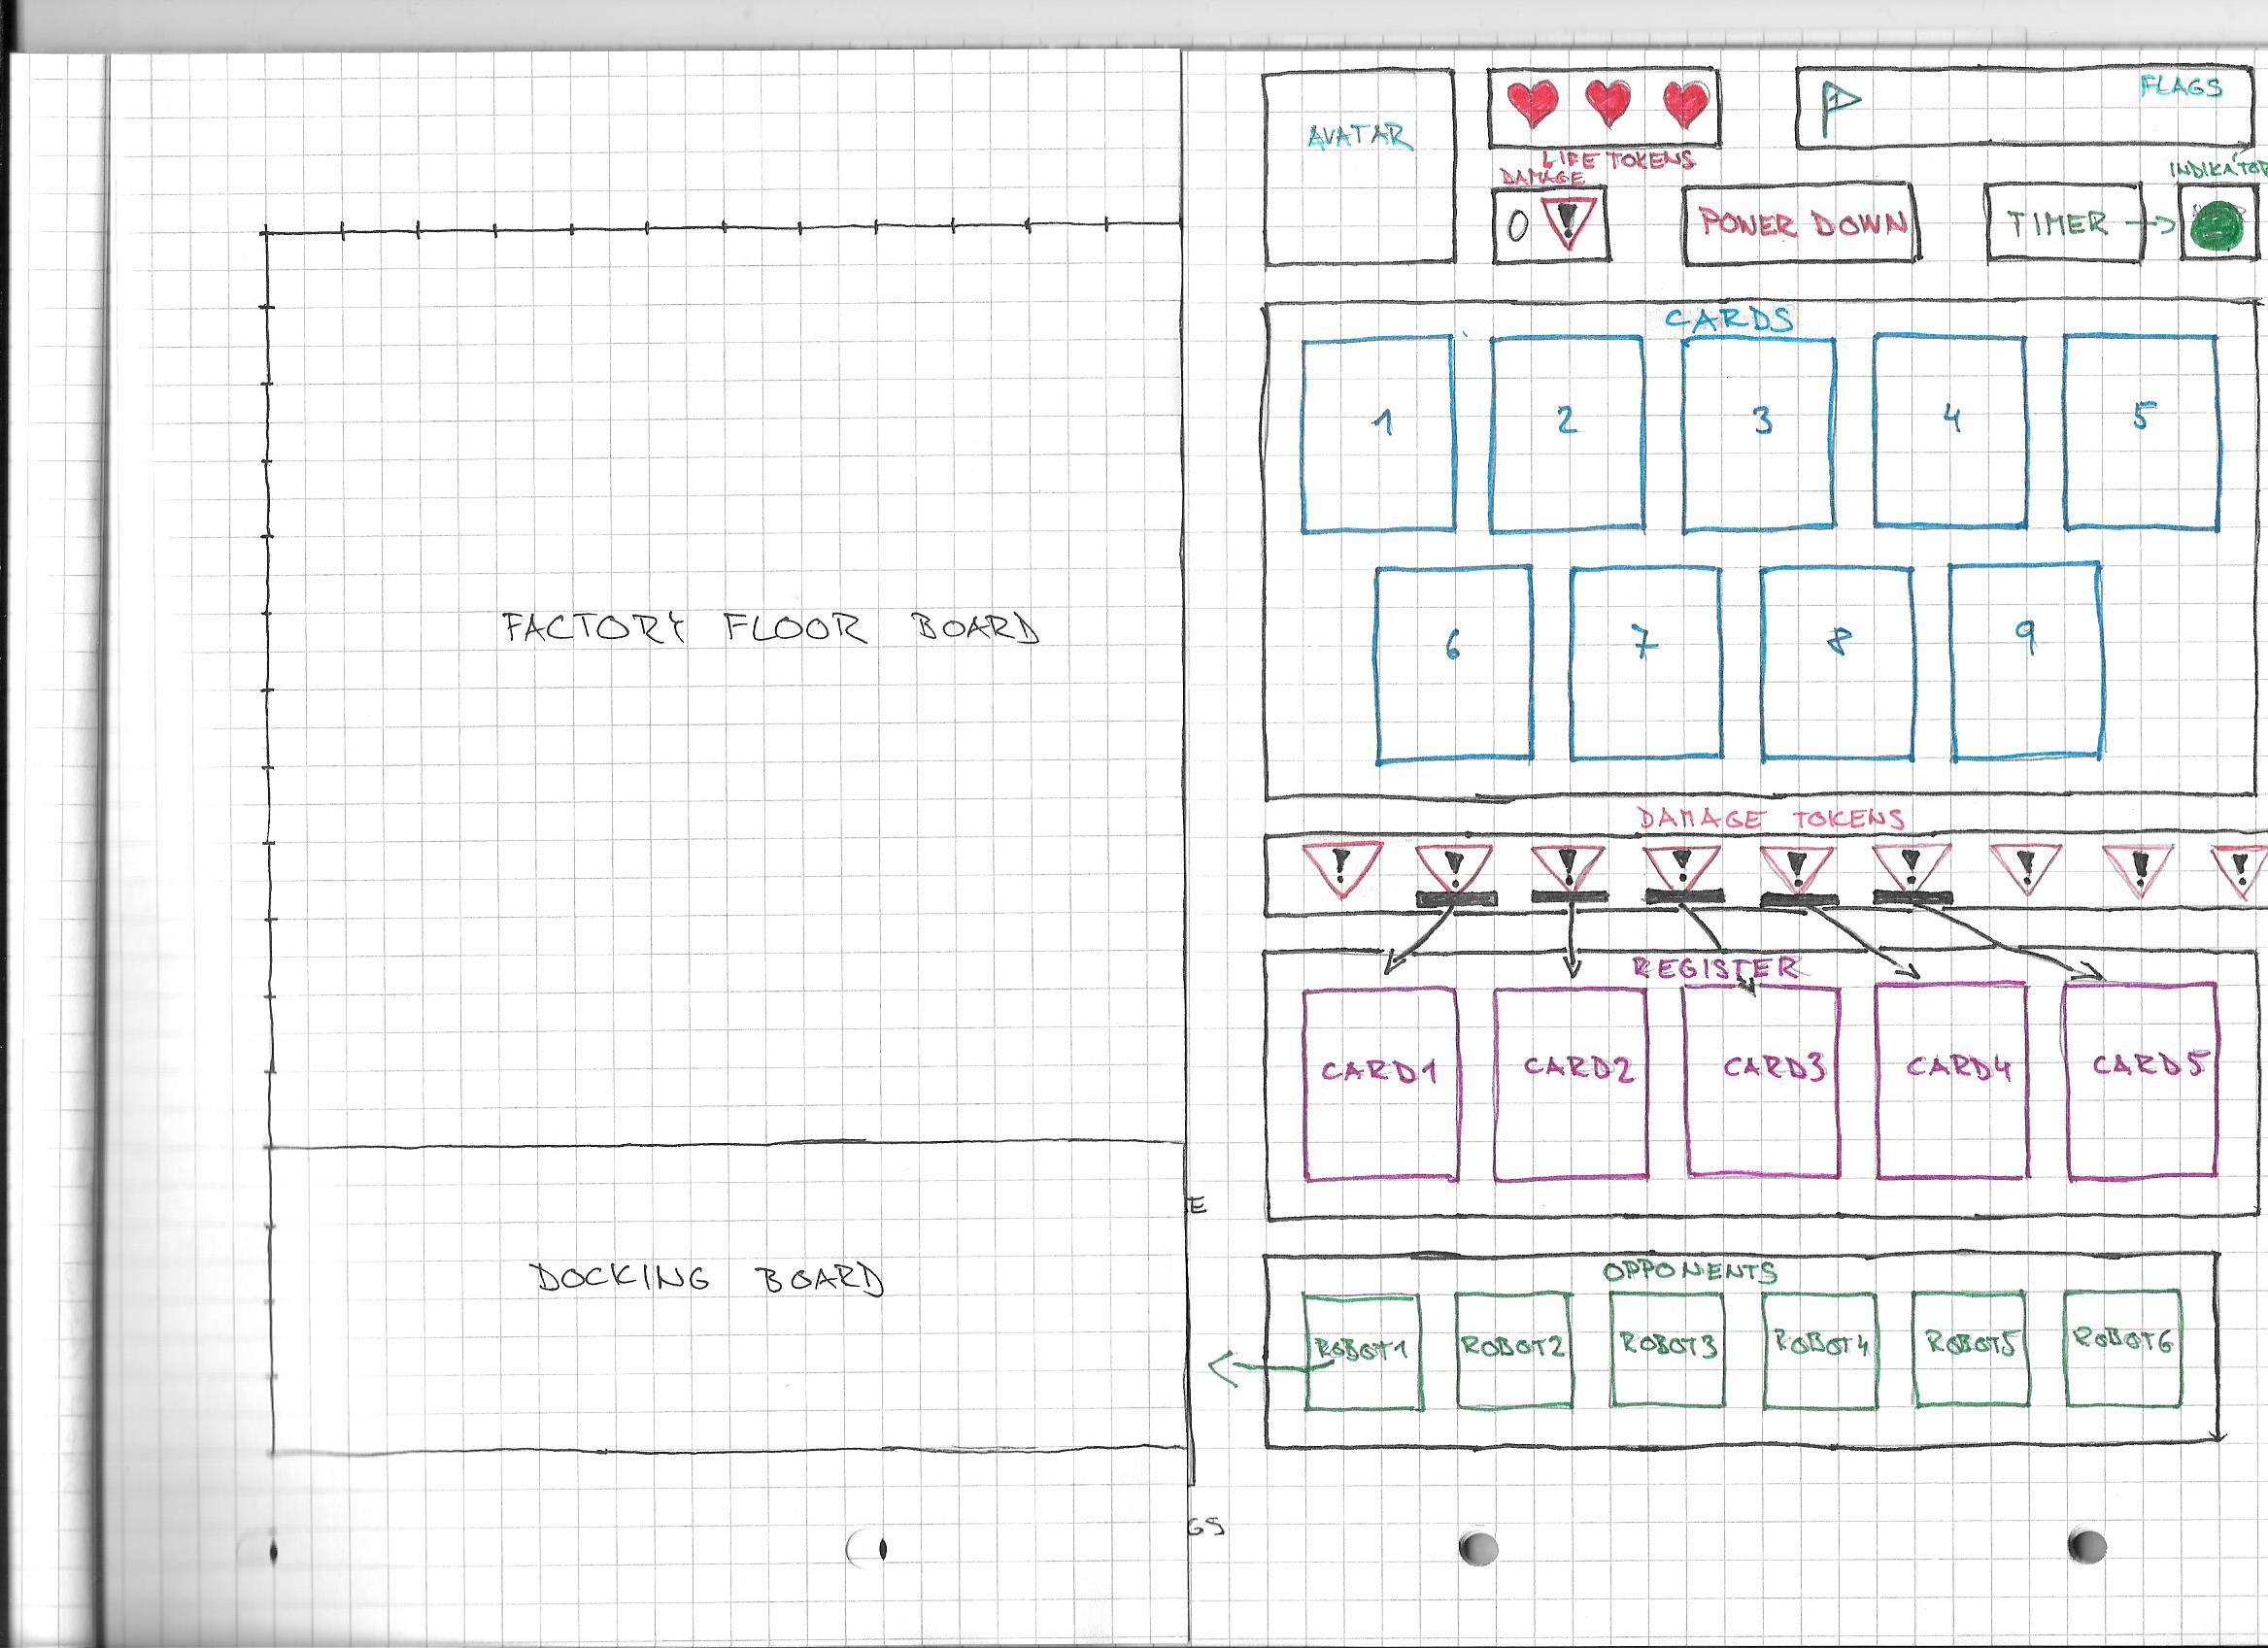 FACTORY FLOOR BOARD
DOCKING BOARD
E
GS
AVATAR
LIFE TOKENS
FLAGS
DAMAGE
0 !
POWER DOWN
TIMER
INDIKÁTOR
CARDS
1 2 3 4 5
6 7 8 9
DAMAGE TOKENS
! ! ! ! ! ! ! ! !
REGISTER
CARD1 CARD2 CARD3 CARD4 CARD5
OPPONENTS
ROBOT1 ROBOT2 ROBOT3 ROBOT4 ROBOT5 ROBOT6